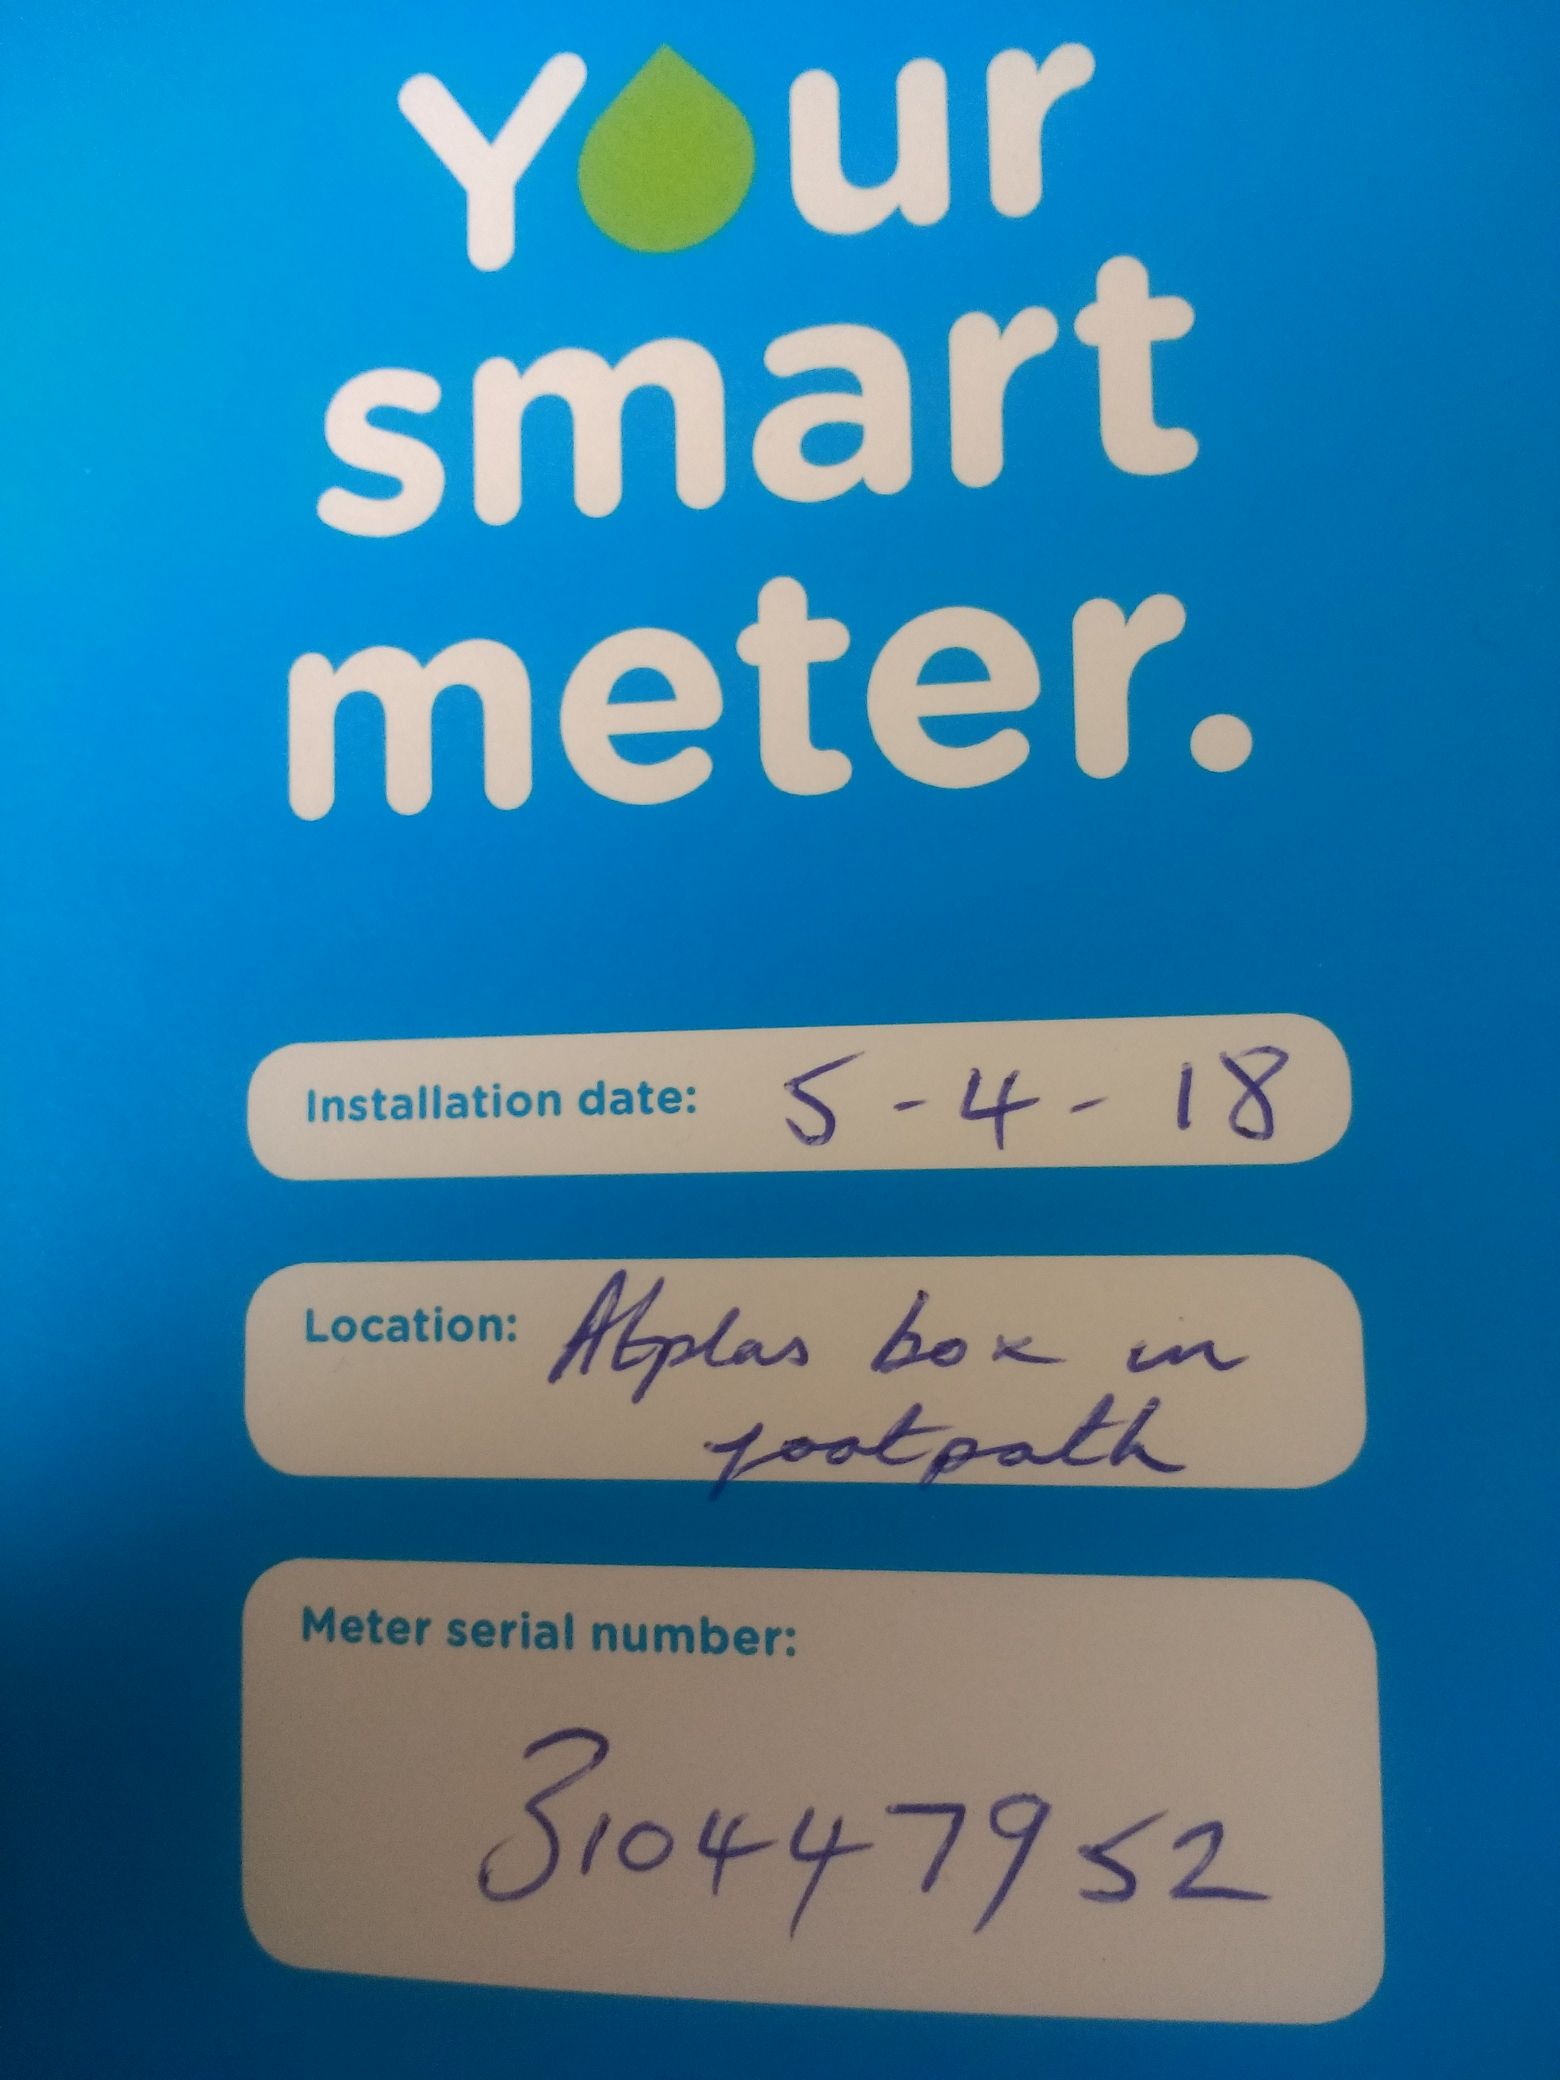 Your
smart
meter.
Installation date: 5-4-18
Location: Atplas box in
footpath
Meter serial number:
310447952